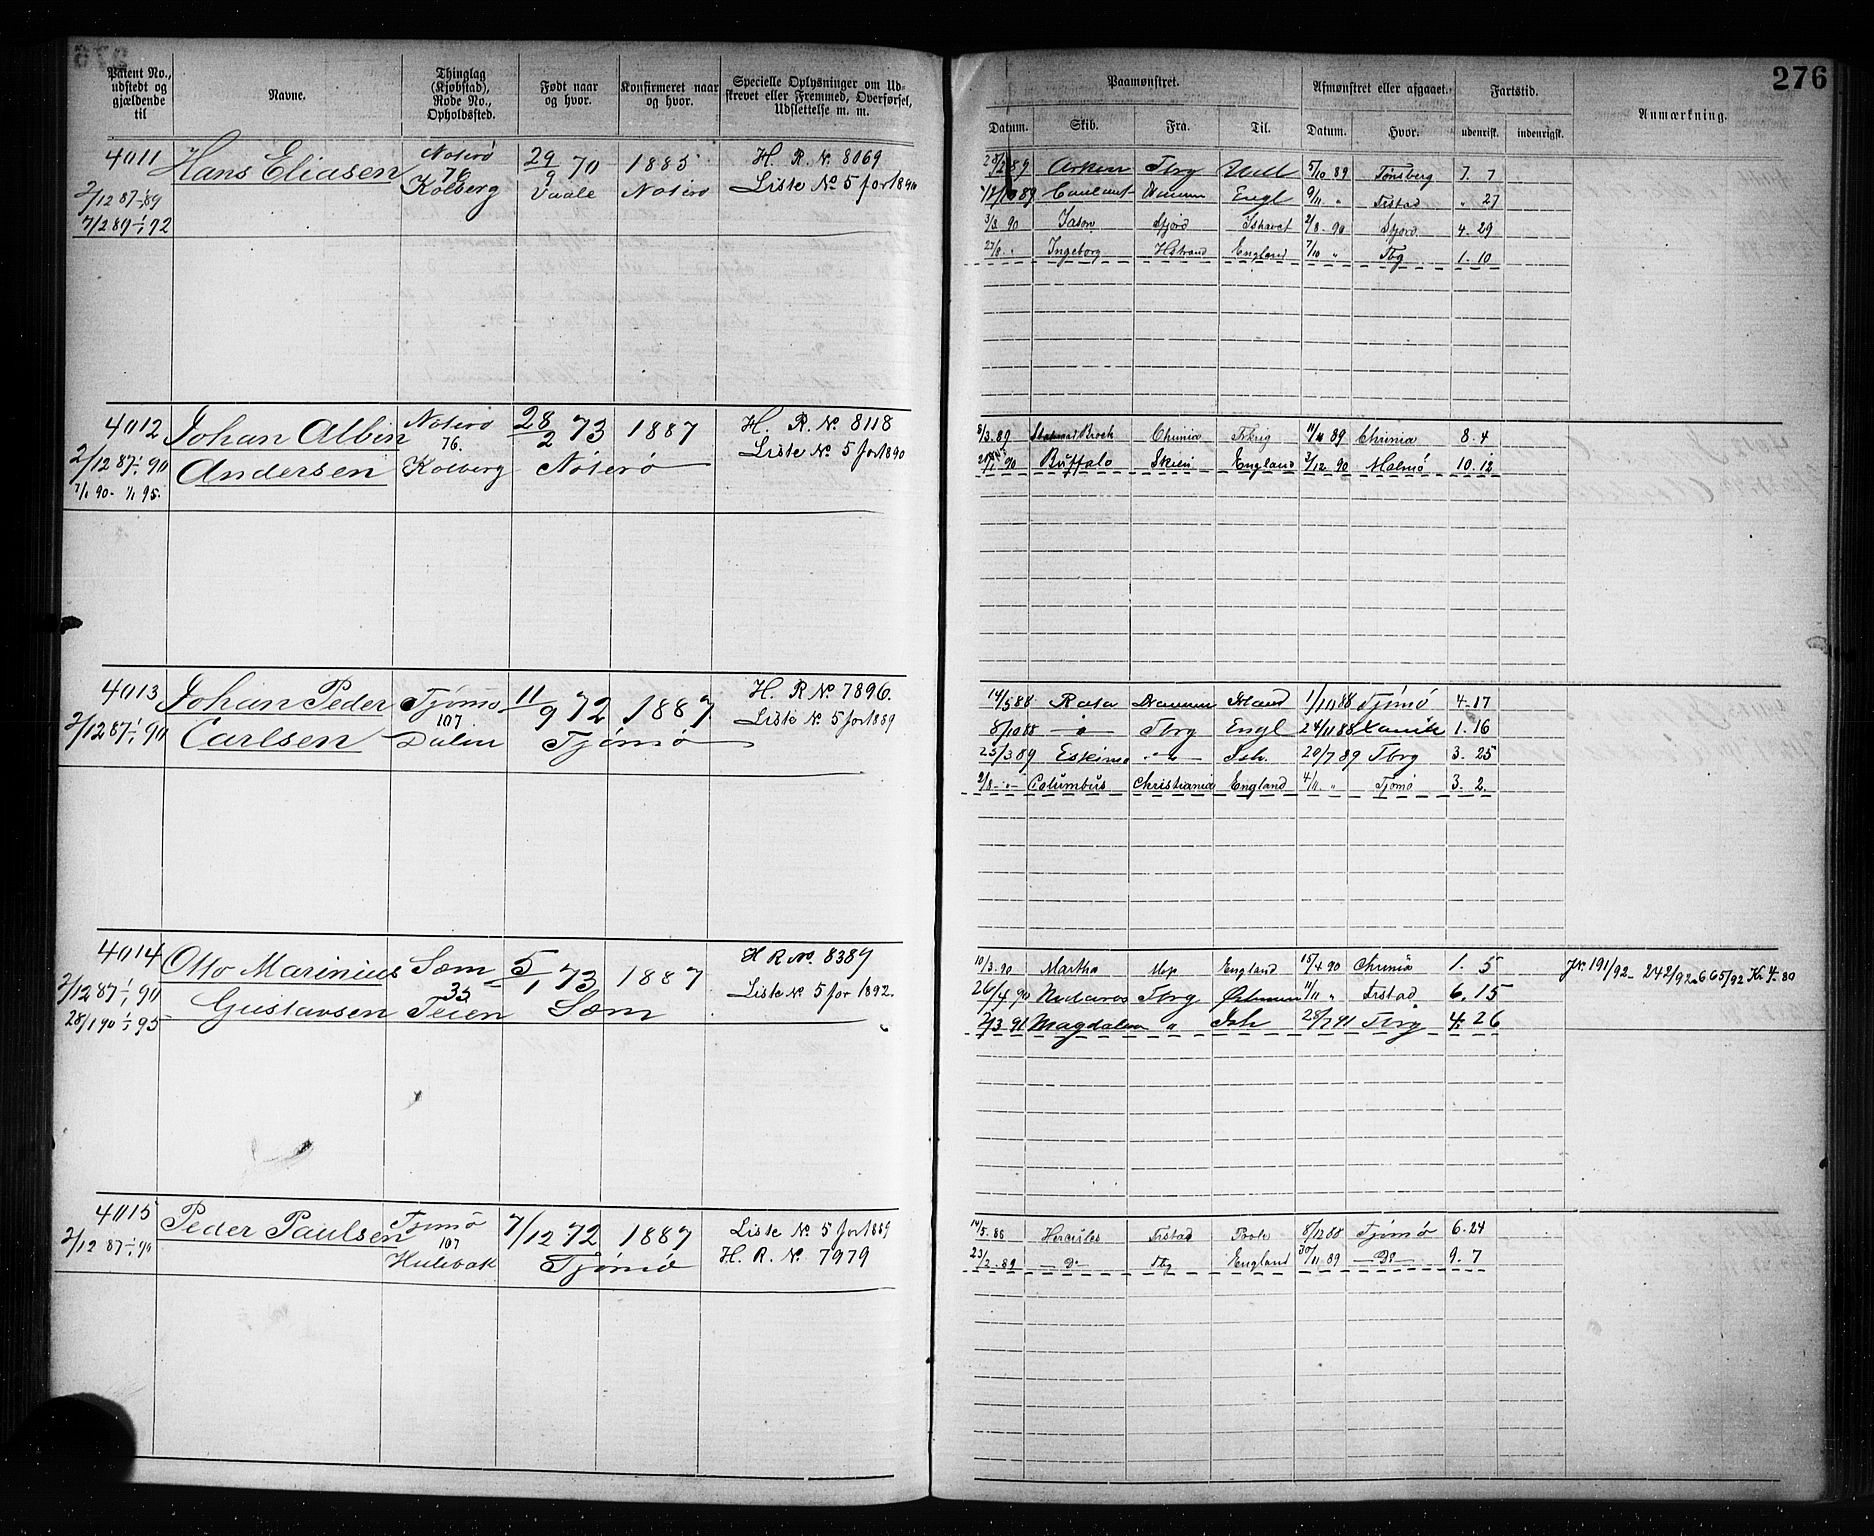 276
Patent No., udstedt og gjældende til
Navne.
Thinglag (Kjøbstad), Rode No., Opholdssted.
Født naar og hvor.
Konfirmeret naar og hvor.
Specielle Oplysninger om Udskrevet eller Fremmed, Overførsel, Udslettelse m. m.
Paamønstret.
Afmønstret eller afgaaet.
Fartstid.
Anmærkning.
Datum. Skib. Fra. Til. Datum. Hvor. udenrigsk. indenrigsk.
4011 Hans Eliasen Nøterø 29/9 70 1885 H. R. No. 8069
2/12 87 1/1 89 76 Kolberg Vaale Nøterø Liste No 5 for 1890
7/2 89 1/1 92
28/2 89 Tbrg 5/10 89 Tønsberg 7. 7
Engl 9/11 " Frstad " 27
3/3 90 Jason Sfjord Ishavet 2/8 90 Sfjord 4. 29
27/8 " Ingeborg Hstrand England 7/10 " Tbg 1. 10
4012 Johan Albin Nøterø 28/2 73 1887 H. R. No 8118
2/12 87 1/1 90 Andersen 76. Kolberg Nöterö Liste No. 5 for 1890
7/1 90 - 1/1 95.
8/3 89 Chrinia 89 Chrinia 8. 4
90 Buffalo Skien England 3/12 90 Malmö 10. 12
4013 Johan Peder Tjømø 11/9 72 1887 H. R No 7896.
2/12 87 1/1 90 Carlsen 107 Dalen Tjømø Liste No. 5 for 1889
14/5 88 Rota Drammen 1/10 88 Tjömö 4-17
8/10 88 -"- Tbrg Engl 24/11 88 1. 16
25/3 89 Eskimo -"- Ish. 20/7 89 Tbrg 3. 25
2/8 -"- Columbus Christiania England 4/11. " Tjömö 3. 2.
4014 Otto Marinius Sæm 5/1 73 1887 H R No. 8389
2/12 87 1/1 90 Gustavsen 35 Teien Sæm Liste No 5 for 1892.
28/1 90 1/1 95
10/3 90 Martha England 15/4 90 Chrinia 1. 5 Jr. 191/92 - 242/92 - 665/92 Kr 4-80
26/4 90 Nidaros Tbrg 11/11 " Frstad 6. 15
2/3 91 Magdalena " Ish 28/7 91 Tbrg 4. 26
4015 Peder Paulsen Tjømø 7/12 72 1887 Liste No. 5 for 1889
2/12 87 1/1 90 107 Hulebak Tjømø H. R. No. 7979
14/5 88 Hercules Frstad Poole 8/12 88 Tjömö 6. 24
23/2 89 - Do Tbg England 30/11 89 - Do - 9. 7